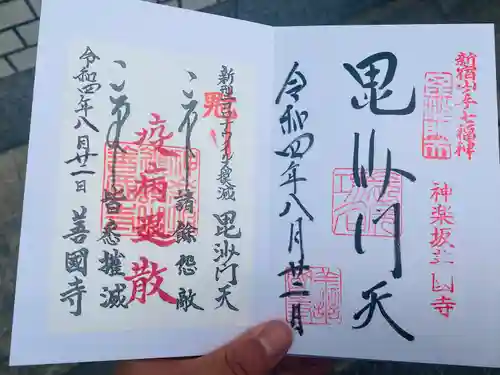 新宿山ノ手七福神
毘沙門天
神楽坂 善国寺
令和四年八月廿二日
新型コロナウイルス衰滅 毘沙門天
諸餘怨敵
疫病退散
皆悉摧滅
令和四年八月廿二日 善國寺